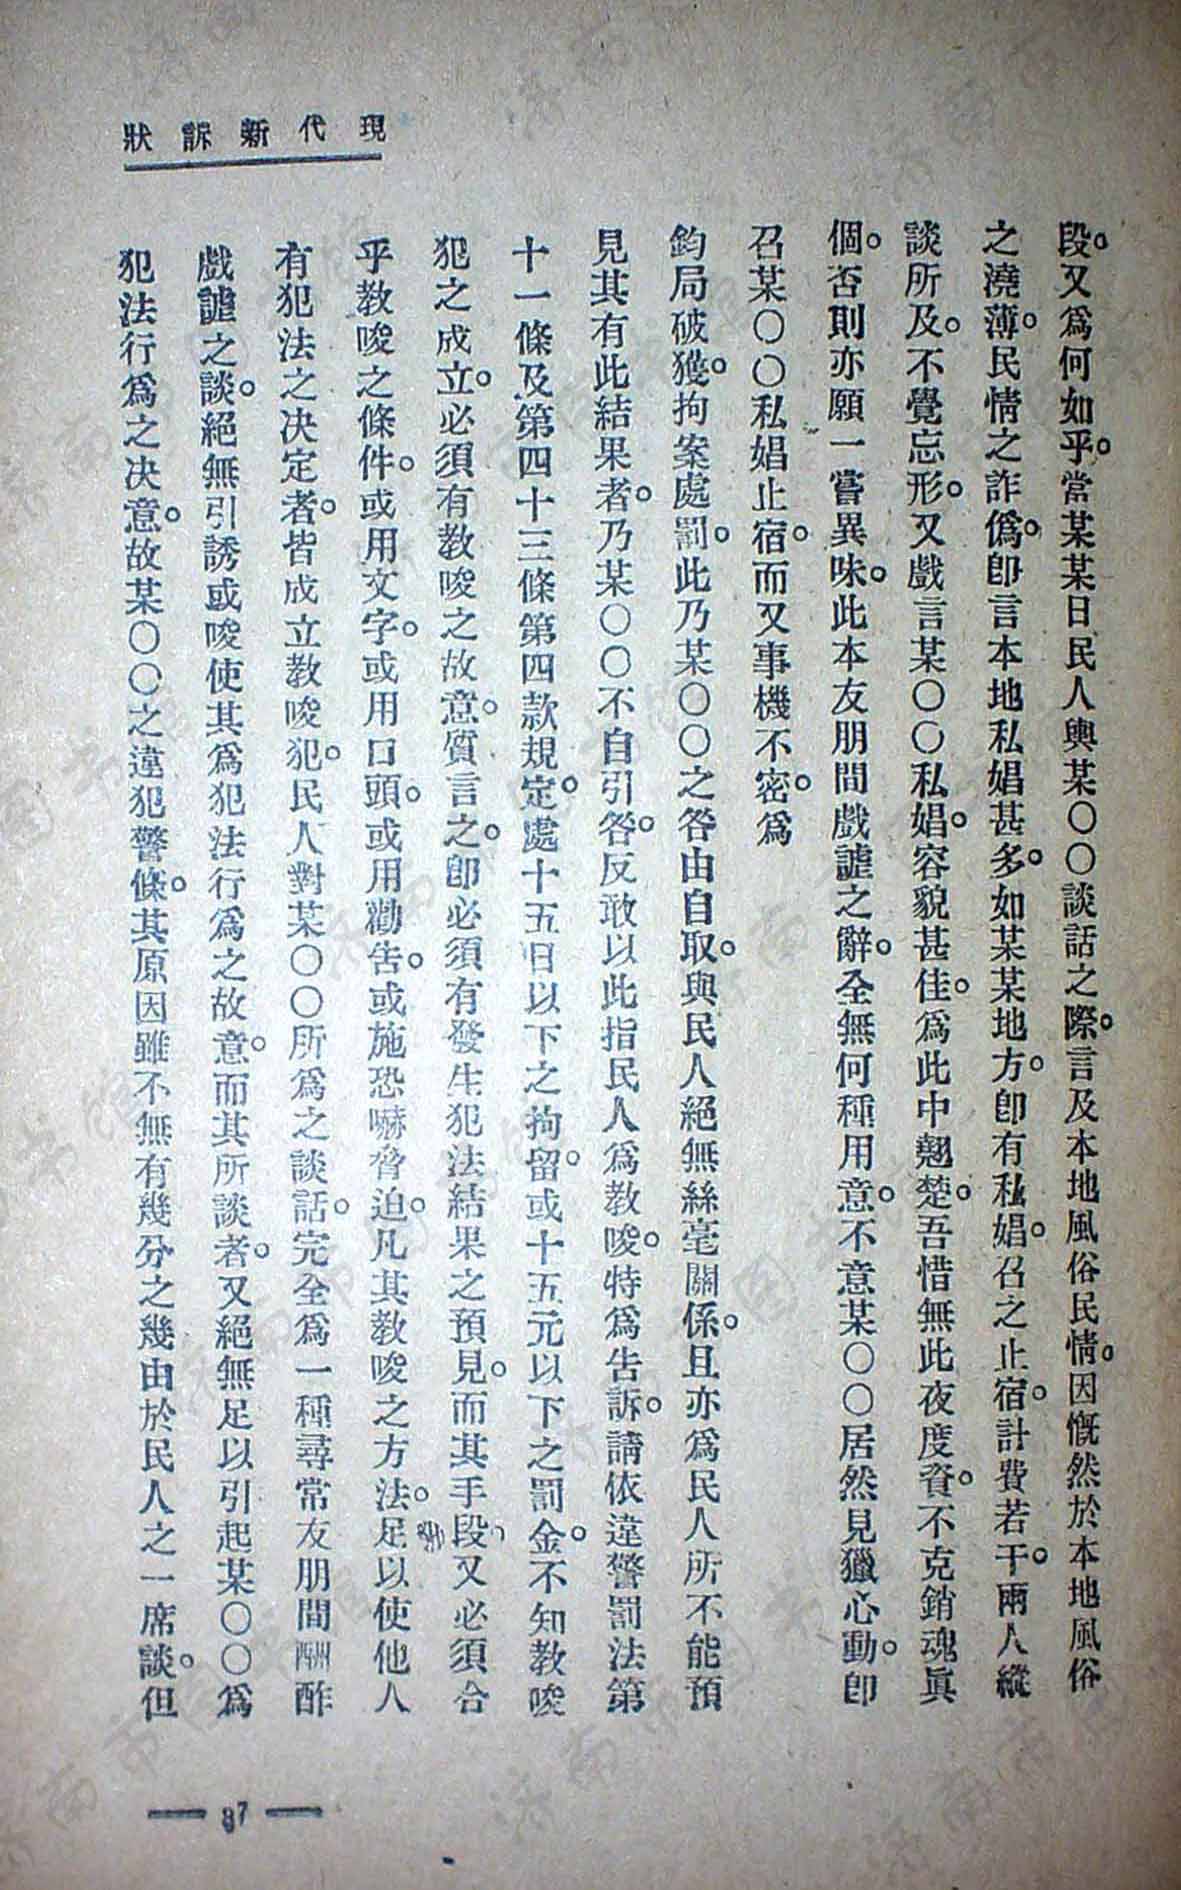 現代新訴狀
段。又爲何如乎。當某某日民人與某〇〇談話之際。言及本地風俗民情。因慨然於本地風俗
之澆薄。民情之詐僞。卽言本地私娼甚多。如某某地方。卽有私娼。召之止宿。計費若干。兩人縱
談所及。不覺忘形。又戲言某〇〇私娼。容貌甚佳。爲此中翹楚。吾惜無此夜度資。不克銷魂眞
個。否則亦願一嘗異味。此本友朋間戲謔之辭。全無何種用意。不意某〇〇居然見獵心動。卽
召某〇〇私娼止宿。而又事機不密。爲
鈞局破獲。拘案處罰。此乃某〇〇之咎由自取。與民人絕無絲毫關係。且亦爲民人所不能預
見其有此結果者。乃某〇〇不自引咎。反敢以此指民人爲教唆。特爲告訴。請依違警罰法第
十一條及第四十三條第四款規定。處十五日以下之拘留。或十五元以下之罰金。不知教唆
犯之成立。必須有教唆之故意。質言之。卽必須有發生犯法結果之預見。而其手段又必須合
乎教唆之條件。或用文字。或用口頭。或用勸告。或施恐嚇脅迫。凡其教唆之方法。足以使他人
有犯法之決定者。皆成立教唆犯。民人對某〇〇所爲之談話。完全爲一種尋常友朋間酬酢
戲謔之談。絕無引誘或唆使其爲犯法行爲之故意。而其所談者。又絕無足以引起某〇〇爲
犯法行爲之決意。故某〇〇之違犯警條。其原因雖不無有幾分之幾由於民人之一席談。但
— 87 —